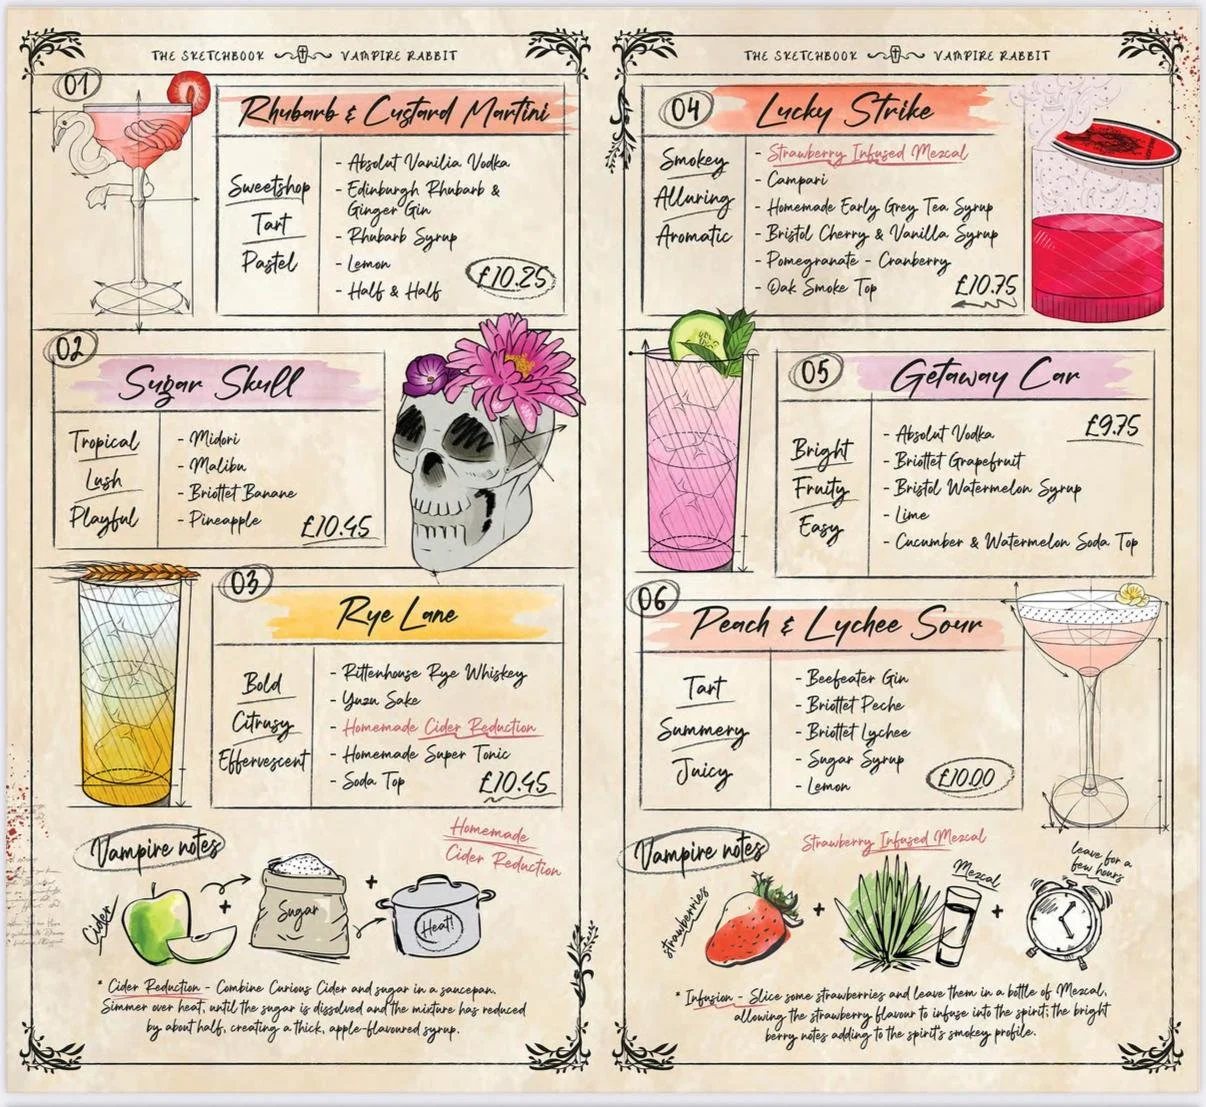 THE SKETCHBOOK VAMPIRE RABBIT
01
Rhubarb & Custard Martini
Sweetshop
Tart
Pastel
- Absolut Vanilia Vodka
- Edinburgh Rhubarb &
Ginger Gin
- Rhubarb Syrup
- Lemon
- Half & Half
£10.25
02
Sugar Skull
Tropical
Lush
Playful
- Midori
- Malibu
- Briottet Banane
- Pineapple
£10.45
03
Rye Lane
Bold
Citrusy
Effervescent
- Rittenhouse Rye Whiskey
- Yuzu Sake
- Homemade Cider Reduction
- Homemade Super Tonic
- Soda Top
£10.45
Vampire notes
Homemade
Cider Reduction
Cider
+
Sugar
+
Heat!
* Cider Reduction - Combine Curious Cider and sugar in a saucepan.
Simmer over heat, until the sugar is dissolved and the mixture has reduced
by about half, creating a thick, apple-flavoured syrup.
THE SKETCHBOOK VAMPIRE RABBIT
04
Lucky Strike
Smokey
Alluring
Aromatic
- Strawberry Infused Mezcal
- Campari
- Homemade Early Grey Tea Syrup
- Bristol Cherry & Vanilla Syrup
- Pomegranate - Cranberry
- Oak Smoke Top
£10.75
05
Getaway Car
Bright
Fruity
Easy
£9.75
- Absolut Vodka
- Briottet Grapefruit
- Bristol Watermelon Syrup
- Lime
- Cucumber & Watermelon Soda Top
06
Peach & Lychee Sour
Tart
Summery
Juicy
- Beefeater Gin
- Briottet Peche
- Briottet Lychee
- Sugar Syrup
- Lemon
£10.00
Vampire notes
Strawberry Infused Mezcal
strawberries
+
Mezcal
+
leave for a
few hours
* Infusion - Slice some strawberries and leave them in a bottle of Mezcal,
allowing the strawberry flavour to infuse into the spirit; the bright
berry notes adding to the spirit's smokey profile.